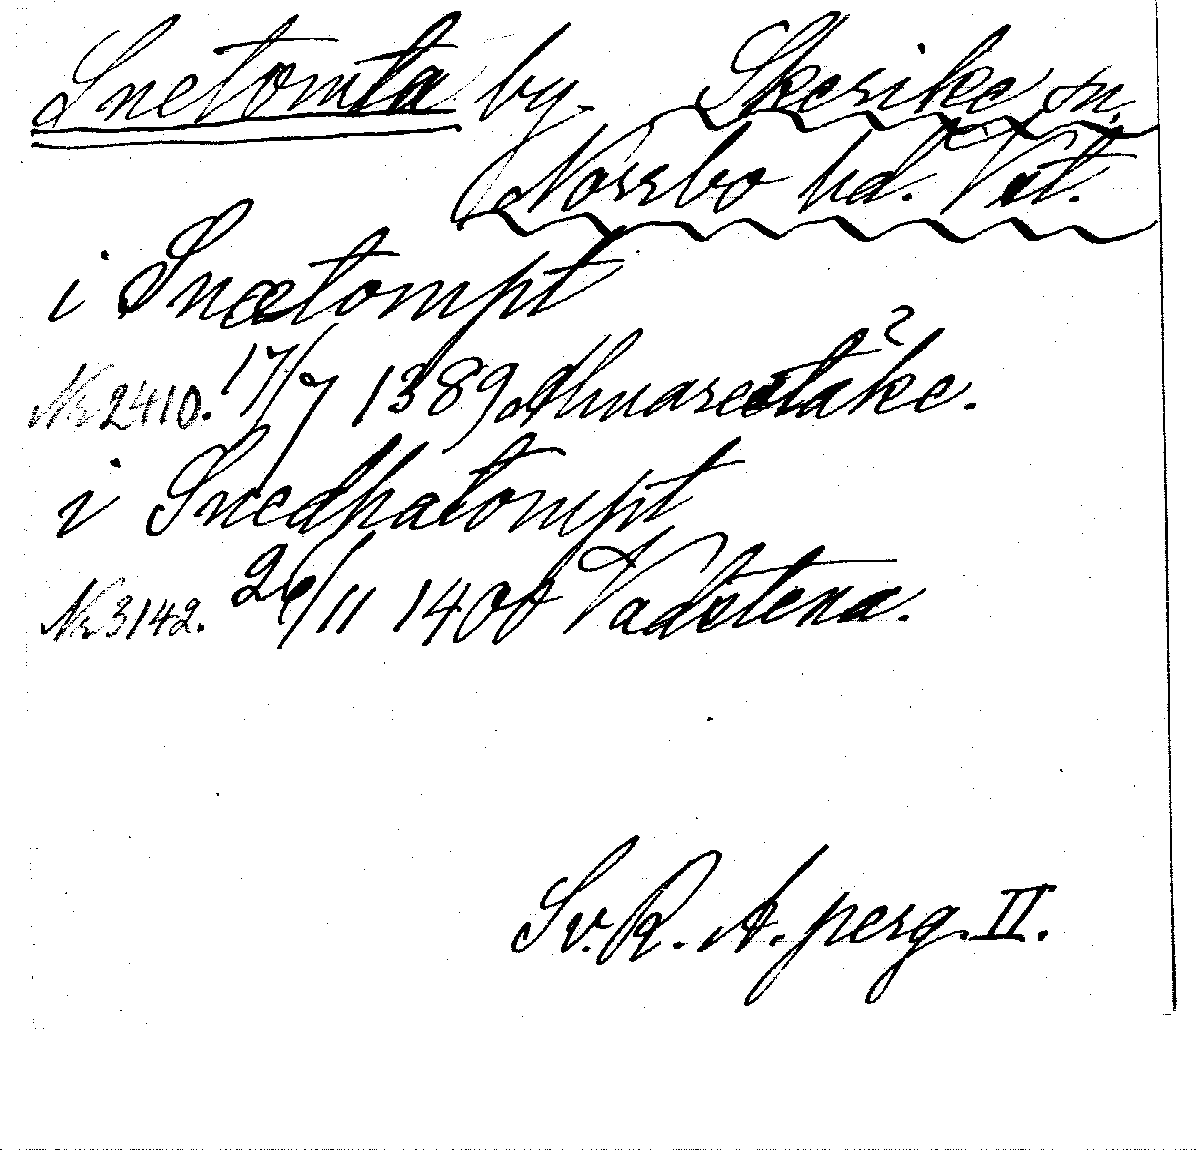 Snetomta by. Skerike sn.
Norrbo hd. Vstl.
i Snætompt
Nr 2410. 17/7 1389 Almarestäke.
?
i Snedhatompt
Nr 3142. 26/11 1400 Vadstena.
Sv. R. A. perg. II.